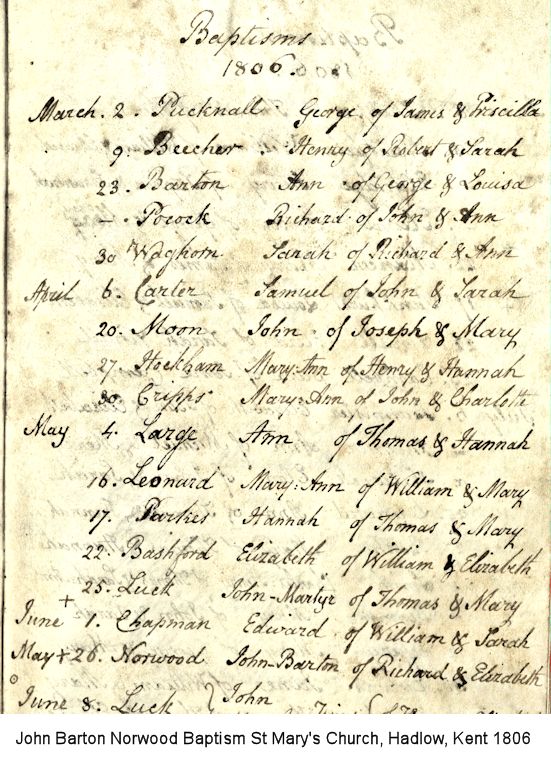 Baptisms
1806.
March. 2. Pucknall George of James & Priscilla
9. Beecher Henry of Robert & Sarah
23. Barton Ann of George & Louisa
— Pocock Richard of John & Ann
30 Waghorn Sarah of Richard & Ann
April 6. Carter Samuel of John & Sarah
20. Moon John of Joseph & Mary
27. Hockham Mary-Ann of Henry & Hannah
30. Cripps Mary-Ann of John & Charlotte
May 4. Large Ann of Thomas & Hannah
16. Leonard Mary-Ann of William & Mary
17. Hannah of Thomas & Mary
22. Bashford Elizabeth of William & Elizabeth
25. Luck John-Martyr of Thomas & Mary
June + 1. Chapman Edward of William & Sarah
May + 26. Norwood John-Barton of Richard & Elizabeth
June 8. Luck } John
John Barton Norwood Baptism St Mary's Church, Hadlow, Kent 1806